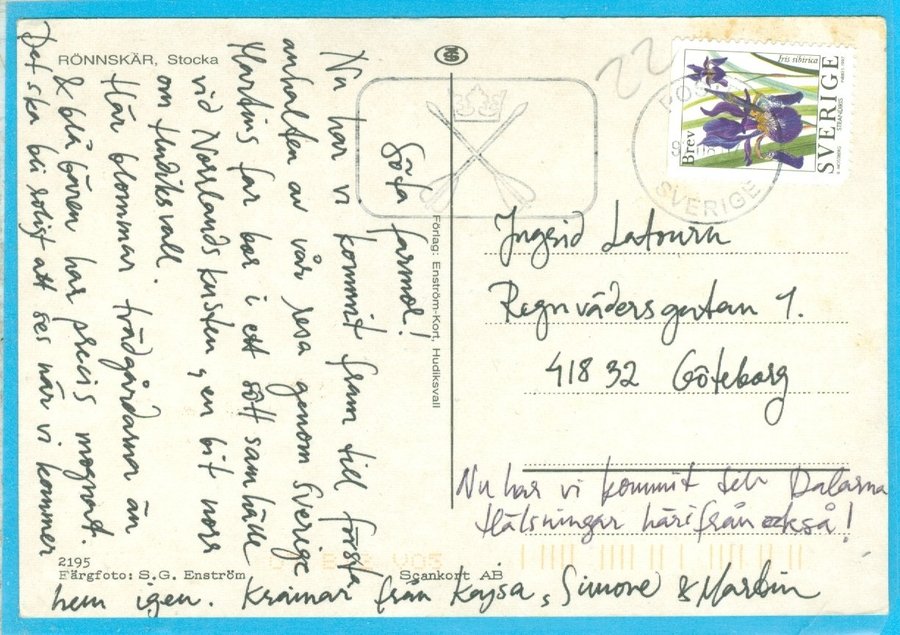 RÖNNSKÄR, Stocka
Söta farmor!
Nu har vi kommit fram till första
anhalten av vår resa genom Sverige
Martins far bor i ett sött samhälle
vid Norrlands kusten, en bit norr
om Hudiksvall.
Här blommar trädgårdarna än
& blåbären har precis mognat.
Det ska bli roligt att ses när vi kommer
hem igen. Kramar från Kajsa, Simone & Martin
2195
Färgfoto: S.G. Enström
Scankort AB
Förlag: Enström-Kort, Hudiksvall
22
Iris sibirica
Brev
SVERIGE
SVERIGE
Ingrid Latourn
Regnvädersgatan 1.
418 32 Göteborg
Nu har vi kommit till Dalarna
Hälsningar härifrån också!